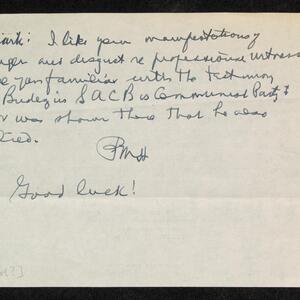 I like your manifestations of
and disgust re professional witness
you familiar with the testimony
Budenz in SACB vs Communist Party &
was shown there that he also
lied.
Good luck!